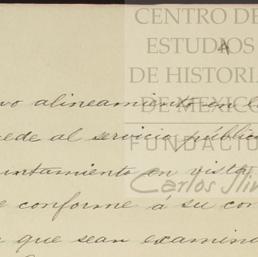 CENTRO DE
ESTUDIOS
DE HISTORIA
DE MEXICO
FUNDACIÓN
Carlos Slim
vo alineamiento en
ede al servicio públic
untamiento en vista
e conforme á su con
que sean examina